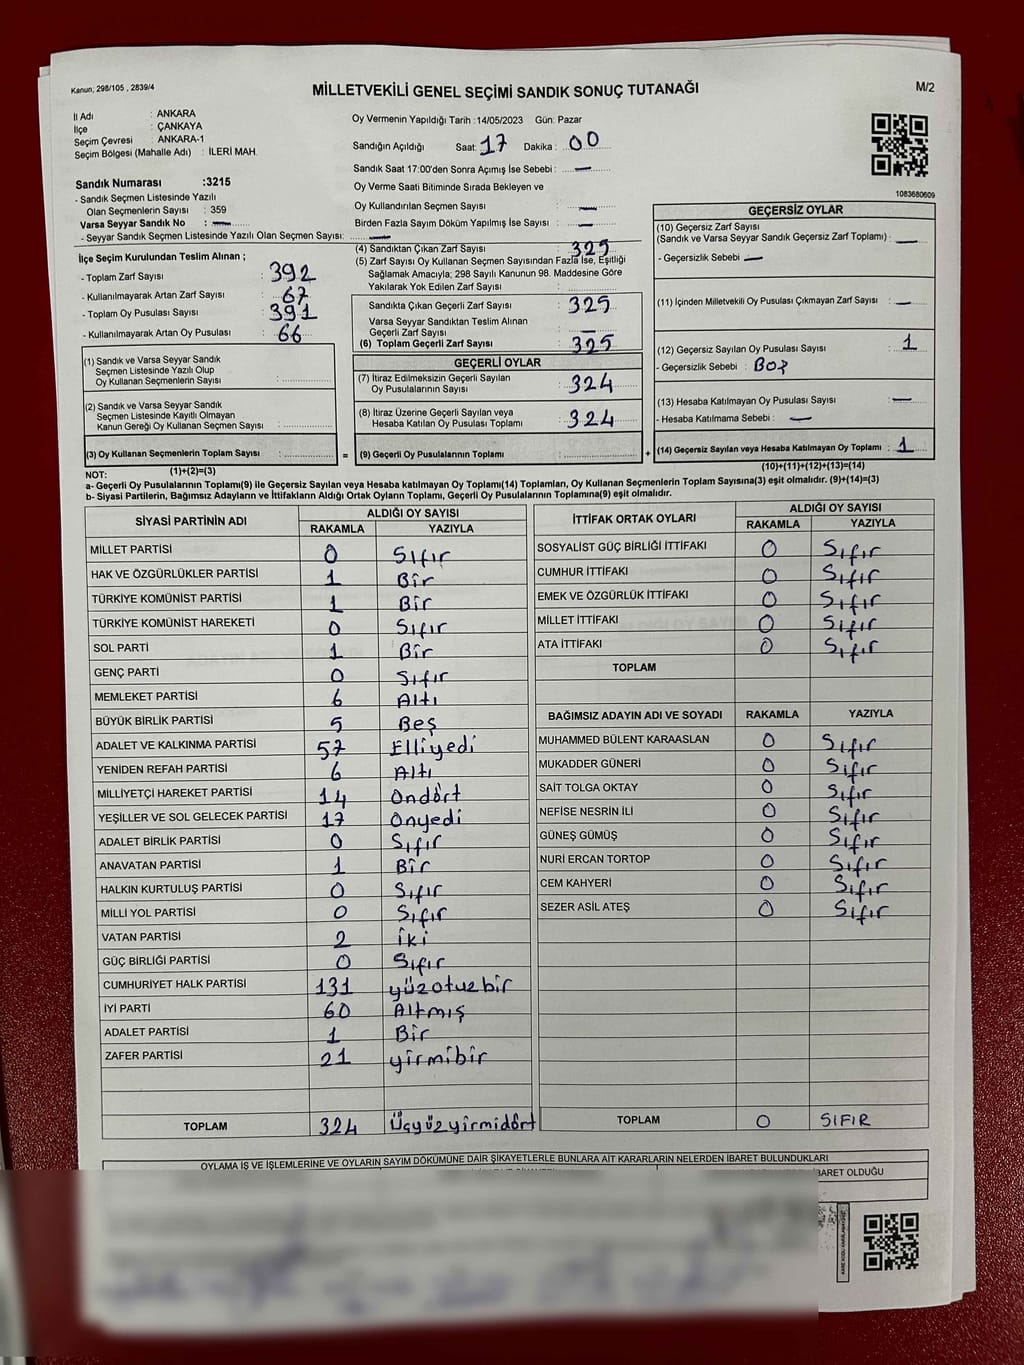 Kanun; 298/105 , 2839/4
MİLLETVEKİLİ GENEL SEÇİMİ SANDIK SONUÇ TUTANAĞI
M/2
İl Adı : ANKARA
İlçe : ÇANKAYA
Seçim Çevresi : ANKARA-1
Seçim Bölgesi (Mahalle Adı) : İLERİ MAH.
Oy Vermenin Yapıldığı Tarih :14/05/2023 Gün: Pazar
Sandığın Açıldığı Saat: 17 Dakika : 00
Sandık Saat 17:00'den Sonra Açımış İse Sebebi : —
Oy Verme Saati Bitiminde Sırada Bekleyen ve
Oy Kullandırılan Seçmen Sayısı : —
Birden Fazla Sayım Döküm Yapılmış İse Sayısı : —
1083680609
Sandık Numarası :3215
- Sandık Seçmen Listesinde Yazılı
Olan Seçmenlerin Sayısı : 359
Varsa Seyyar Sandık No : —
- Seyyar Sandık Seçmen Listesinde Yazılı Olan Seçmen Sayısı: —
İlçe Seçim Kurulundan Teslim Alınan ;
- Toplam Zarf Sayısı : 392
- Kullanılmayarak Artan Zarf Sayısı : 67
- Toplam Oy Pusulası Sayısı : 391
- Kullanılmayarak Artan Oy Pusulası : 66
(1) Sandık ve Varsa Seyyar Sandık
Seçmen Listesinde Yazılı Olup
Oy Kullanan Seçmenlerin Sayısı :
(2) Sandık ve Varsa Seyyar Sandık
Seçmen Listesinde Kayıtlı Olmayan
Kanun Gereği Oy Kullanan Seçmen Sayısı :
(3) Oy Kullanan Seçmenlerin Toplam Sayısı :
(4) Sandıktan Çıkan Zarf Sayısı : 325
(5) Zarf Sayısı Oy Kullanan Seçmen Sayısından Fazla İse, Eşitliği
Sağlamak Amacıyla; 298 Sayılı Kanunun 98. Maddesine Göre
Yakılarak Yok Edilen Zarf Sayısı :
Sandıkta Çıkan Geçerli Zarf Sayısı : 325
Varsa Seyyar Sandıktan Teslim Alınan
Geçerli Zarf Sayısı : —
(6) Toplam Geçerli Zarf Sayısı : 325
GEÇERLİ OYLAR
(7) İtiraz Edilmeksizin Geçerli Sayılan
Oy Pusulalarının Sayısı : 324
(8) İtiraz Üzerine Geçerli Sayılan veya
Hesaba Katılan Oy Pusulası Toplamı : 324
= (9) Geçerli Oy Pusulalarının Toplamı : +
GEÇERSİZ OYLAR
(10) Geçersiz Zarf Sayısı
(Sandık ve Varsa Seyyar Sandık Geçersiz Zarf Toplamı) : —
- Geçersizlik Sebebi : —
(11) İçinden Milletvekili Oy Pusulası Çıkmayan Zarf Sayısı : —
(12) Geçersiz Sayılan Oy Pusulası Sayısı : 1
- Geçersizlik Sebebi : Boş
(13) Hesaba Katılmayan Oy Pusulası Sayısı : —
- Hesaba Katılmama Sebebi : —
(14) Geçersiz Sayılan veya Hesaba Katılmayan Oy Toplamı : 1
NOT: (1)+(2)=(3)
(10)+(11)+(12)+(13)=(14)
a- Geçerli Oy Pusulalarının Toplamı(9) ile Geçersiz Sayılan veya Hesaba katılmayan Oy Toplamı(14) Toplamları, Oy Kullanan Seçmenlerin Toplam Sayısına(3) eşit olmalıdır. (9)+(14)=(3)
b- Siyasi Partilerin, Bağımsız Adayların ve İttifakların Aldığı Ortak Oyların Toplamı, Geçerli Oy Pusulalarının Toplamına(9) eşit olmalıdır.
SİYASİ PARTİNİN ADI ALDIĞI OY SAYISI
RAKAMLA YAZIYLA
MİLLET PARTİSİ 0 Sıfır
HAK VE ÖZGÜRLÜKLER PARTİSİ 1 Bir
TÜRKİYE KOMÜNİST PARTİSİ 1 Bir
TÜRKİYE KOMÜNİST HAREKETİ 0 Sıfır
SOL PARTİ 1 Bir
GENÇ PARTİ 0 Sıfır
MEMLEKET PARTİSİ 6 Altı
BÜYÜK BİRLİK PARTİSİ 5 Beş
ADALET VE KALKINMA PARTİSİ 57 Elliyedi
YENİDEN REFAH PARTİSİ 6 Altı
MİLLİYETÇİ HAREKET PARTİSİ 14 Ondört
YEŞİLLER VE SOL GELECEK PARTİSİ 17 Onyedi
ADALET BİRLİK PARTİSİ 0 Sıfır
ANAVATAN PARTİSİ 1 Bir
HALKIN KURTULUŞ PARTİSİ 0 Sıfır
MİLLİ YOL PARTİSİ 0 Sıfır
VATAN PARTİSİ 2 İki
GÜÇ BİRLİĞİ PARTİSİ 0 Sıfır
CUMHURİYET HALK PARTİSİ 131 yüzotuzbir
İYİ PARTİ 60 Altmış
ADALET PARTİSİ 1 Bir
ZAFER PARTİSİ 21 yirmibir
TOPLAM 324 Üçyüzyirmidört
İTTİFAK ORTAK OYLARI ALDIĞI OY SAYISI
RAKAMLA YAZIYLA
SOSYALİST GÜÇ BİRLİĞİ İTTİFAKI 0 Sıfır
CUMHUR İTTİFAKI 0 Sıfır
EMEK VE ÖZGÜRLÜK İTTİFAKI 0 Sıfır
MİLLET İTTİFAKI 0 Sıfır
ATA İTTİFAKI 0 Sıfır
TOPLAM
BAĞIMSIZ ADAYIN ADI VE SOYADI RAKAMLA YAZIYLA
MUHAMMED BÜLENT KARAASLAN 0 Sıfır
MUKADDER GÜNERİ 0 Sıfır
SAİT TOLGA OKTAY 0 Sıfır
NEFİSE NESRİN İLİ 0 Sıfır
GÜNEŞ GÜMÜŞ 0 Sıfır
NURİ ERCAN TORTOP 0 Sıfır
CEM KAHYERİ 0 Sıfır
SEZER ASİL ATEŞ 0 Sıfır
TOPLAM 0 SIFIR
OYLAMA İŞ VE İŞLEMLERİNE VE OYLARIN SAYIM DÖKÜMÜNE DAİR ŞİKAYETLERLE BUNLARA AİT KARARLARIN NELERDEN İBARET BULUNDUKLARI
İBARET OLDUĞU